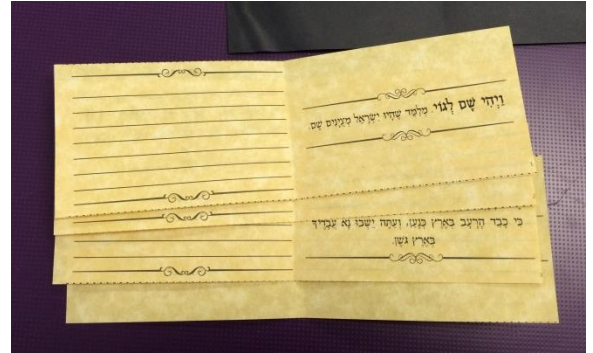 וַיְהִי שָׁם לְגוֹי. מְלַמֵּד שֶׁהָיוּ יִשְׂרָאֵל מְצֻיָּנִים שָׁם.
כִּי כָבֵד הָרָעָב בְּאֶרֶץ כְּנָעַן, וְעַתָּה יֵשְׁבוּ נָא עֲבָדֶיךָ
בְּאֶרֶץ גֹּשֶׁן.